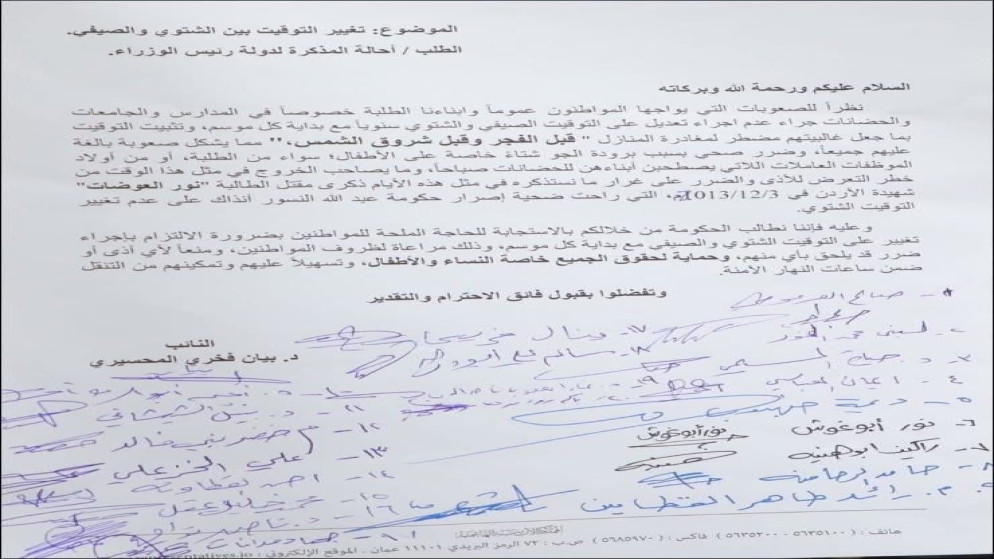 الموضوع: تغيير التوقيت بين الشتوي والصيفي.
الطلب / أحالة المذكرة لدولة رئيس الوزراء.
السلام عليكم ورحمة الله وبركاته
نظراً للصعوبات التي يواجها المواطنون عموماً وابناءنا الطلبة خصوصاً في المدارس والجامعات
والحضانات جراء عدم اجراء تعديل على التوقيت الصيفي والشتوي سنوياً مع بداية كل موسم، وتثبيت التوقيت
بما جعل غالبيتهم مضطر لمغادرة المنازل " قبل الفجر وقبل شروق الشمس،" مما يشكل صعوبة بالغة
عليهم جميعاً، وضرر صحي بسبب برودة الجو شتاءً خاصة على الأطفال؛ سواء من الطلبة، أو من أولاد
الموظفات العاملات اللاتي يصطحبن أبناءهن للحضانات صباحاً، وما يصاحب الخروج في مثل هذا الوقت من
خطر التعرض للأذى والضرر على غرار ما نستذكره في مثل هذه الأيام ذكرى مقتل الطالبة "نور العوضات"
شهيدة الأردن في 2013/12/3م، التي راحت ضحية إصرار حكومة عبد الله النسور آنذاك على عدم تغيير
التوقيت الشتوي.
وعليه فإننا نطالب الحكومة من خلالكم بالاستجابة للحاجة الملحة للمواطنين بضرورة الالتزام بإجراء
تغيير على التوقيت الشتوي والصيفي مع بداية كل موسم، وذلك مراعاة لظروف المواطنين، ومنعاً لأي أذى أو
ضرر قد يلحق بأي منهم، وحماية لحقوق الجميع خاصة النساء والأطفال، وتسهيلاً عليهم وتمكينهم من التنقل
ضمن ساعات النهار الآمنة.
وتفضلوا بقبول فائق الاحترام والتقدير
النائب
د. بيان فخري المحسيري
١- صالح
١٧- ينال فريحات
١٨- سالم
٣- د. صباح
٤- ايمان العباسي
٥- ديمة
١١- د. نبيل الشيشاني
٦- نور أبو غوش
نور أبوغوش
١٢- م خضر بني خالد
٧- راكين ابو هنية
١٣- علي الخزعلي
٨- حامد الرحامنة
٩- م. رائد ظاهر القطامين
هاتف: ٥٦٣٥١٠٠ فاكس:
ص.ب: ٧٢ الرمز البريدي ١١١٠١ عمان - الموقع الإلكتروني: